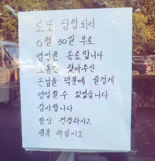 로또 당첨되서
6월 30일 부로
영업을 종료합니다
그동안 찾아주신
손님들 덕분에 즐겁게
영업할 수 있었습니다
감사합니다
항상 건강하시고
행복 하십시오